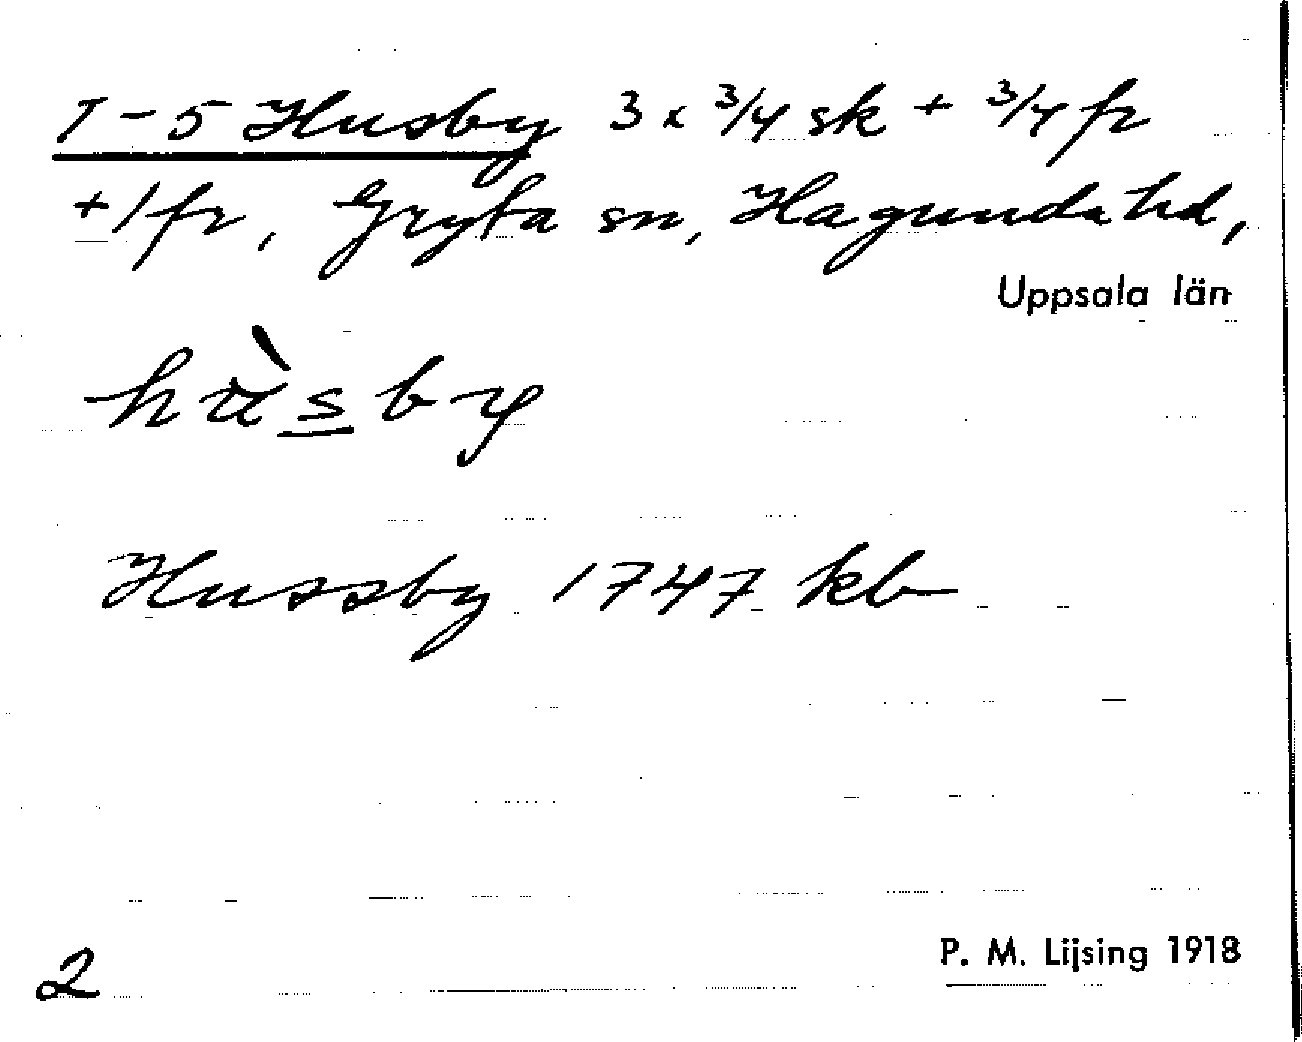 1-5 Husby 3 x 3/4 sk + 3/4 fr
+1 fr, Gryta sn, Hagunda hd,
Uppsala län
hùsby
Hussby 1747 kb
P. M. Lijsing 1918
2